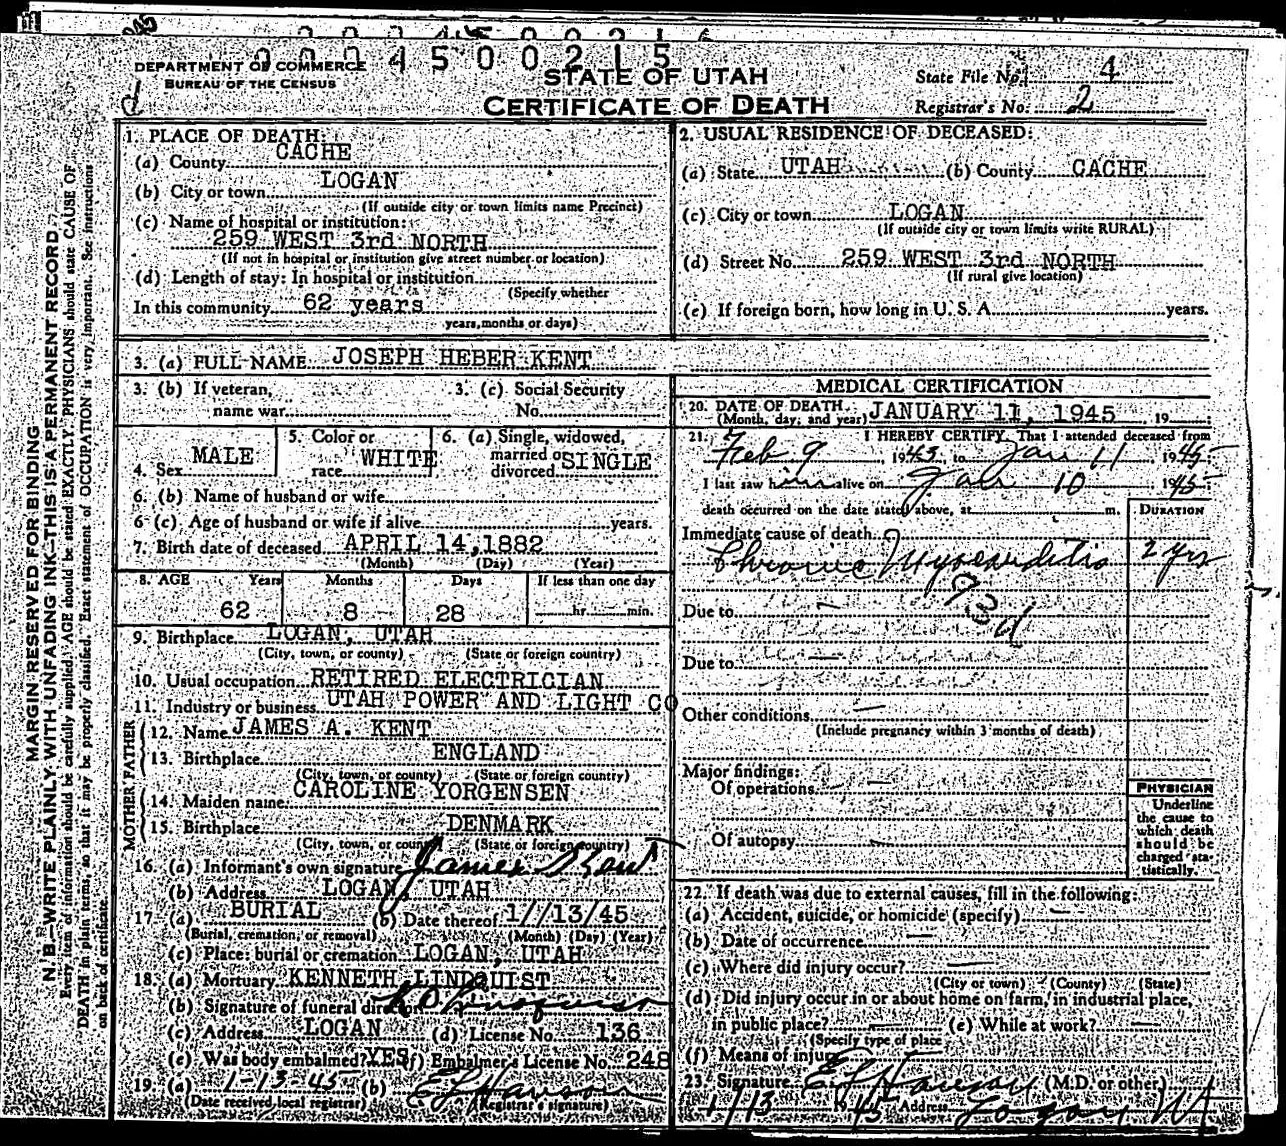 DEPARTMENT OF COMMERCE
BUREAU OF THE CENSUS
004500215
STATE OF UTAH
CERTIFICATE OF DEATH
State File No. 4
Registrar's No. 2
MARGIN RESERVED FOR BINDING
N. B.—WRITE PLAINLY WITH UNFADING INK—THIS IS A PERMANENT RECORD.
Every item of information should be carefully supplied. AGE should be stated EXACTLY. PHYSICIANS should state CAUSE OF
DEATH in plain terms, so that it may be properly classified. Exact statement of OCCUPATION is very important. See instructions
on back of certificate.
1. PLACE OF DEATH:
(a) County CACHE
(b) City or town LOGAN
(If outside city or town limits name Precinct)
(c) Name of hospital or institution:
259 WEST 3rd NORTH
(If not in hospital or institution give street number or location)
(d) Length of stay: In hospital or institution
(Specify whether
In this community 62 years
years, months or days)
2. USUAL RESIDENCE OF DECEASED:
(a) State UTAH (b) County CACHE
(c) City or town LOGAN
(If outside city or town limits write RURAL)
(d) Street No. 259 WEST 3rd NORTH
(If rural give location)
(e) If foreign born, how long in U. S. A. years.
3. (a) FULL NAME JOSEPH HEBER KENT
3. (b) If veteran, 3. (c) Social Security
name war No.
4. Sex MALE 5. Color or race WHITE 6. (a) Single, widowed, married or divorced SINGLE
6. (b) Name of husband or wife
6 (c). Age of husband or wife if alive years.
7. Birth date of deceased APRIL 14, 1882
(Month) (Day) (Year)
8. AGE Years Months Days If less than one day
62 8 28 hr. min.
9. Birthplace LOGAN, UTAH
(City, town, or county) (State or foreign country)
10. Usual occupation RETIRED ELECTRICIAN
11. Industry or business UTAH POWER AND LIGHT CO
FATHER
12. Name JAMES A. KENT
13. Birthplace ENGLAND
(City, town, or county) (State or foreign country)
MOTHER
14. Maiden name CAROLINE YORGENSEN
15. Birthplace DENMARK
(City, town, or county) (State or foreign country)
16. (a) Informant's own signature James Kent
(b) Address LOGAN, UTAH
17 (a) BURIAL (b) Date thereof 1//13/45
(Burial, cremation, or removal) (Month) (Day) (Year)
(c) Place: burial or cremation LOGAN, UTAH
18. (a) Mortuary KENNETH LINDQUIST
(b) Signature of funeral director
(c) Address LOGAN (d) License No. 136
(e) Was body embalmed? YES (f) Embalmer's License No. 248
19. (a) 1-13-45 (b) E L Hanson
(Date received local registrar) (Registrar's signature)
MEDICAL CERTIFICATION
20. DATE OF DEATH JANUARY 11, 1945 19
(Month, day, and year)
21. I HEREBY CERTIFY, That I attended deceased from
Feb 9, 1943, to Jan 11 1945
I last saw him alive on Jan 10 1945
death occurred on the date stated above, at m.
DURATION
Immediate cause of death
Chronic Myocarditis 2 yrs
93d
Due to —
Due to —
Other conditions —
(Include pregnancy within 3 months of death)
Major findings:
Of operations —
Of autopsy —
PHYSICIAN
Underline
the cause to
which death
should be
charged sta-
tistically.
22. If death was due to external causes, fill in the following:
(a) Accident, suicide, or homicide (specify) —
(b) Date of occurrence —
(c) Where did injury occur? —
(City or town) (County) (State)
(d) Did injury occur in or about home on farm, in industrial place,
in public place? — (e) While at work? —
(Specify type of place
(f) Means of injury
23. Signature E L Hanson (M.D. or other)
1/13 1945 Address Logan Ut